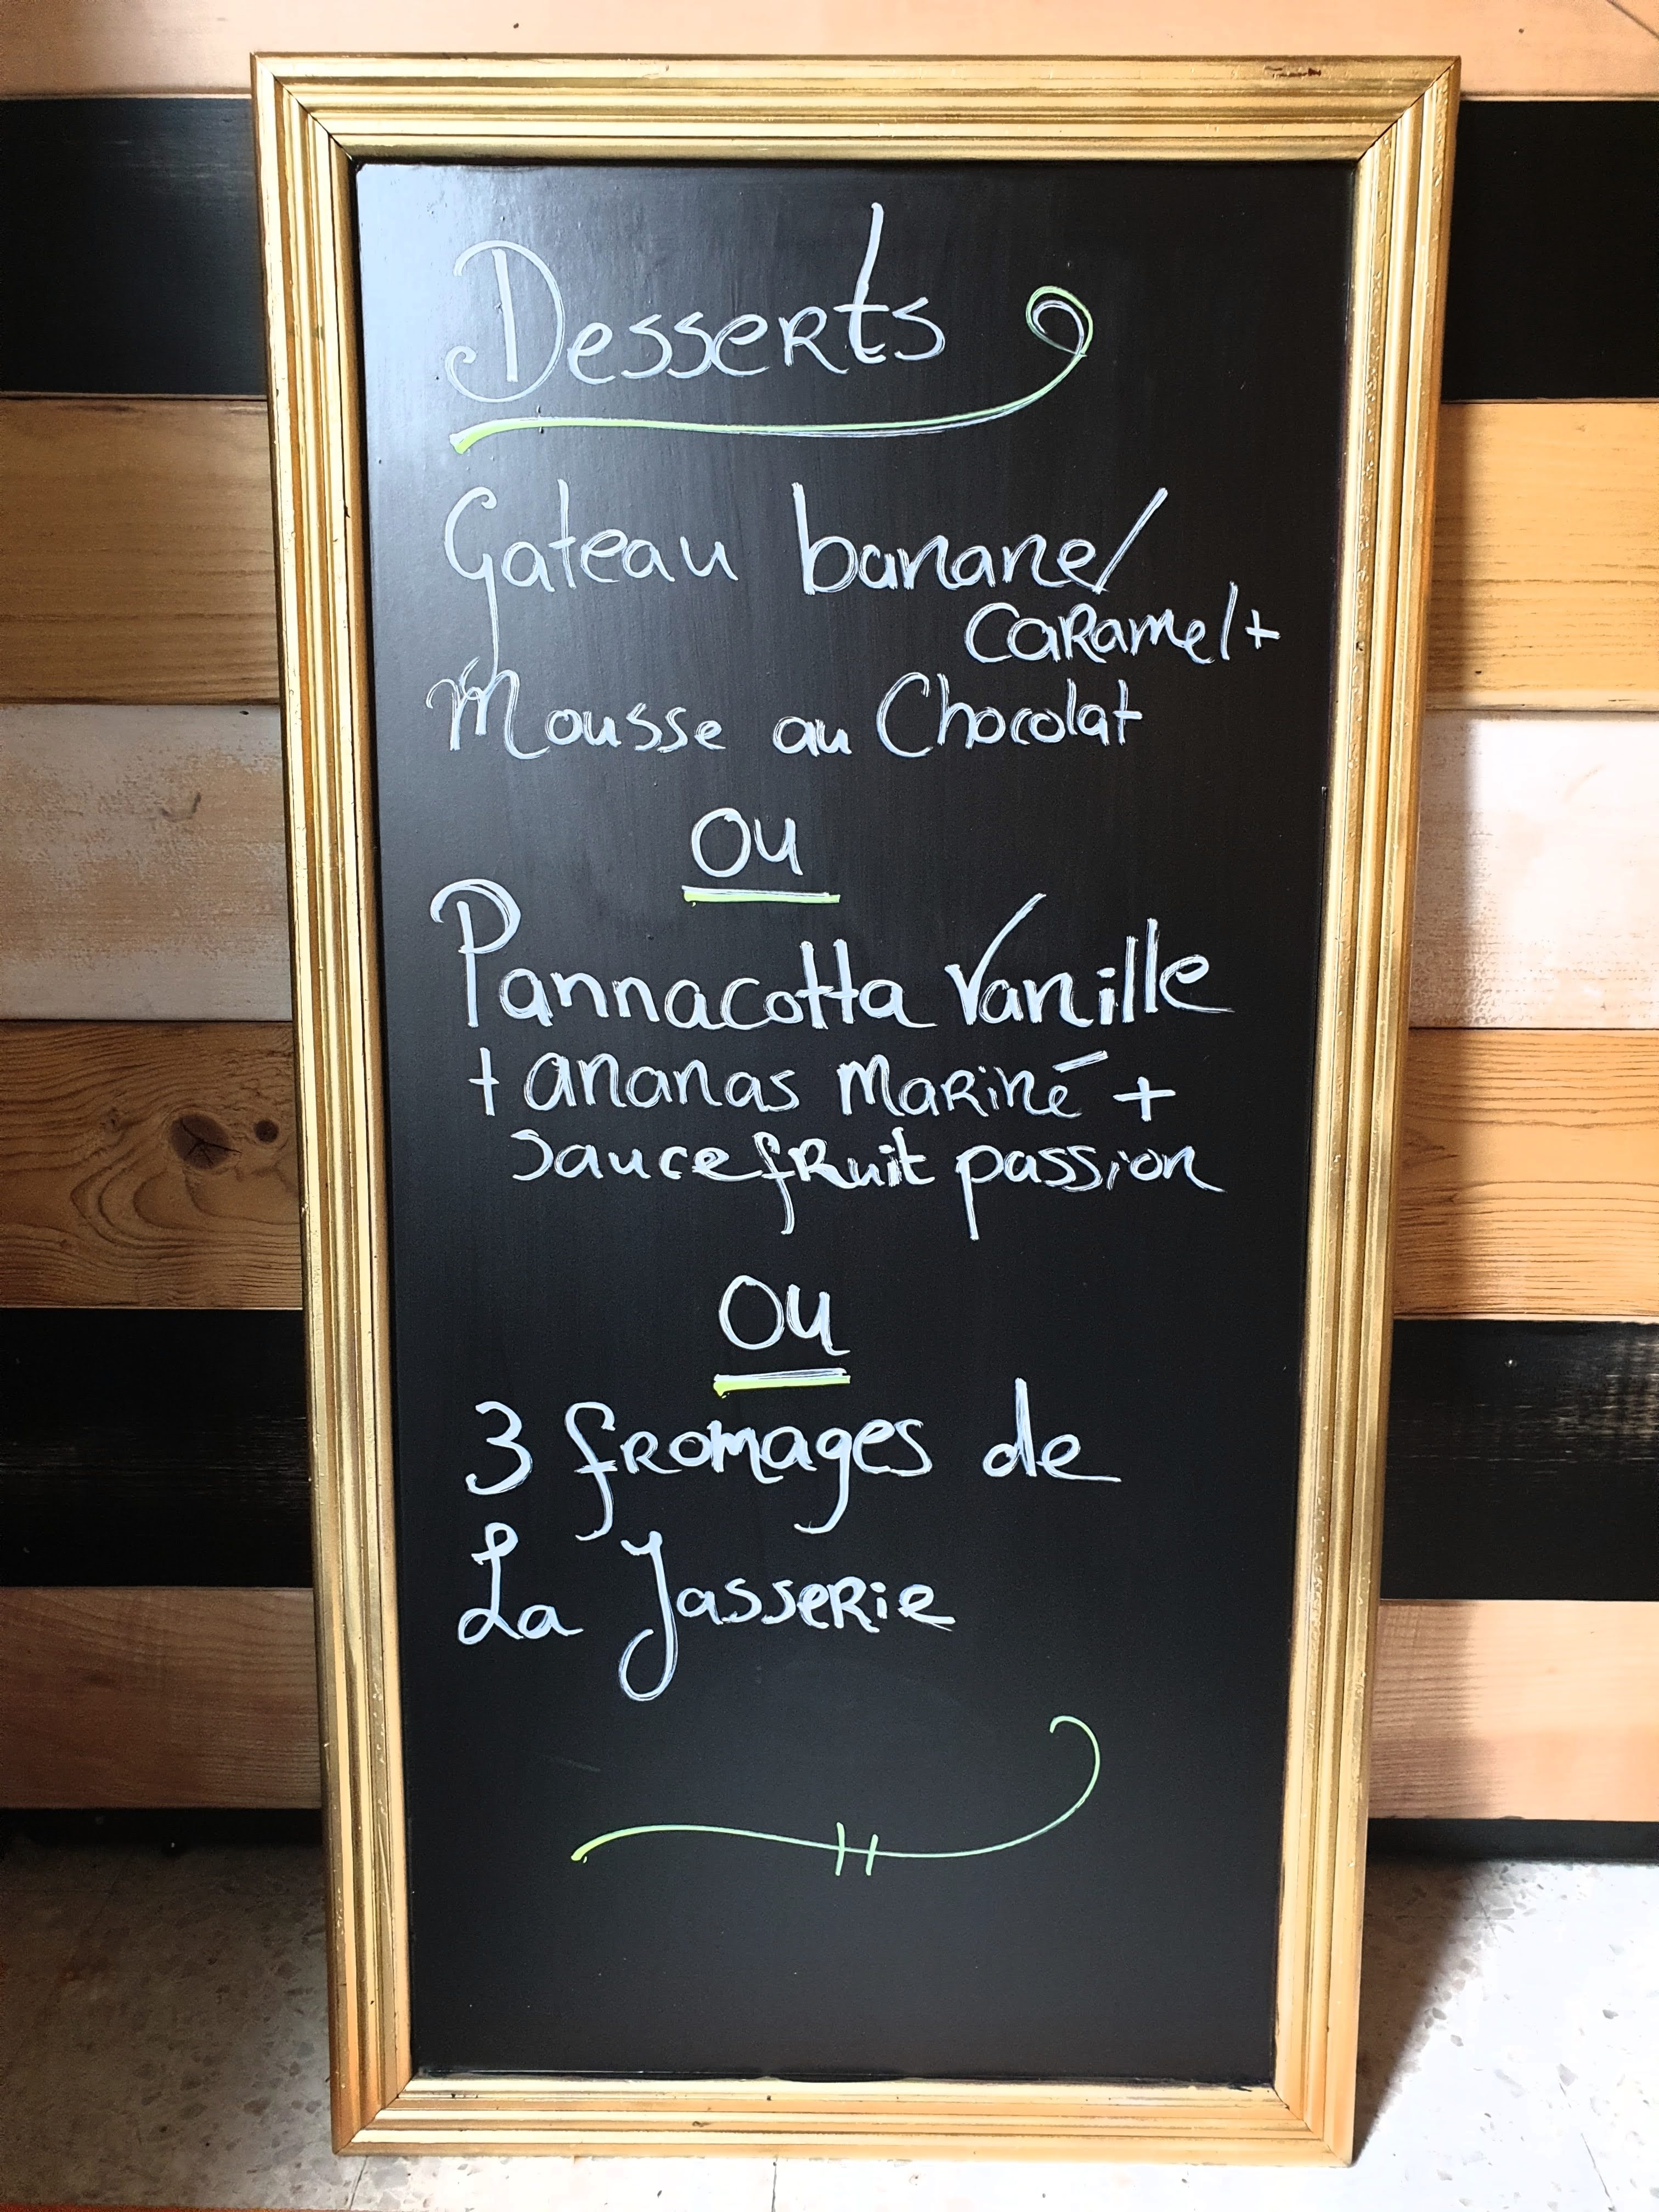 Desserts
Gateau banane/
caramel +
Mousse au Chocolat
ou
Pannacotta Vanille
+ ananas mariné +
sauce fruit passion
ou
3 fromages de
La Jasserie